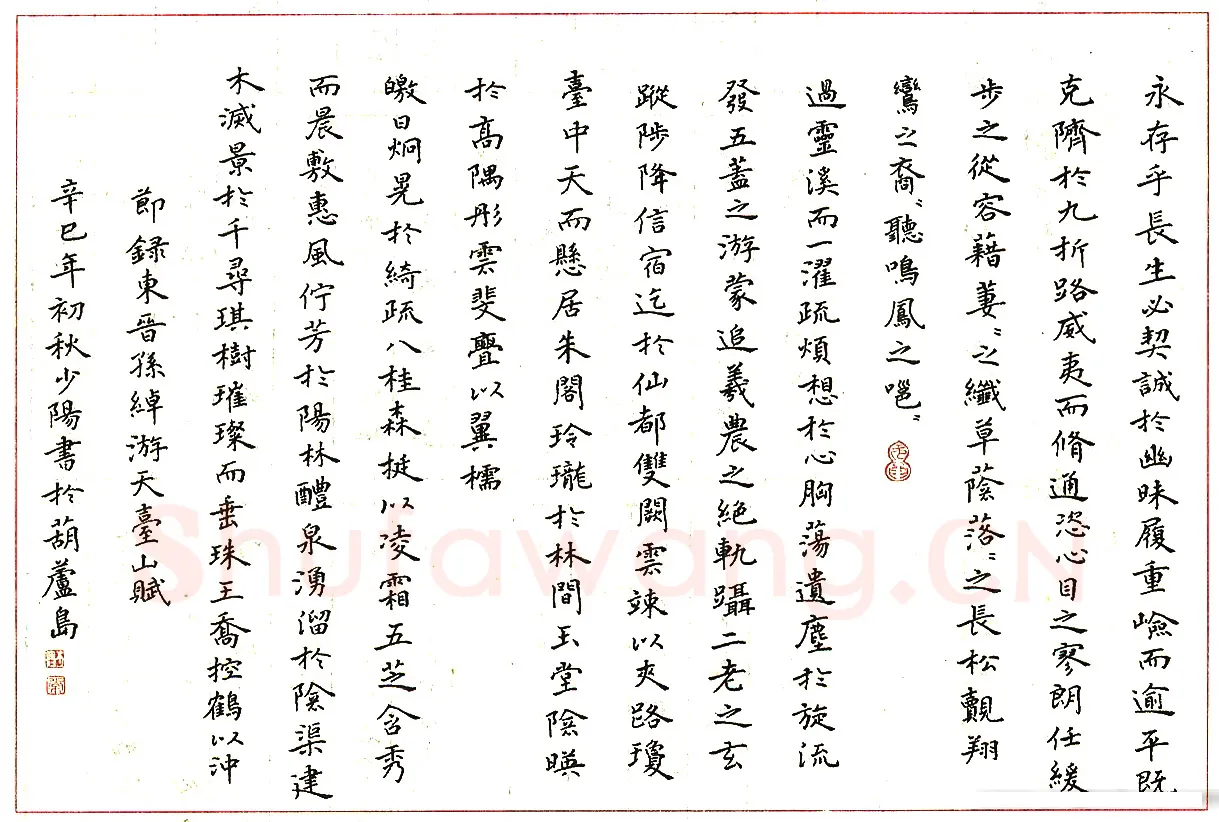 永存乎長生必契誠於幽昧履重嶮而逾平既
克隮於九折路威夷而脩通恣心目之寥朗任緩
步之從容藉萋〻之纖草蔭落〻之長松覿翔
鸞之裔〻聽鳴鳳之嗈〻
過靈溪而一濯疏煩想於心胸蕩遺塵於旋流
發五蓋之游蒙追羲農之絕軌躡二老之玄
蹤陟降信宿迄於仙都雙闕雲竦以夾路瓊
臺中天而懸居朱閣玲瓏於林間玉堂陰暎
於高隅彤雲斐亹以翼櫺
皦日炯晃於綺疏八桂森挺以凌霜五芝含秀
而晨敷惠風佇芳於陽林醴泉湧溜於陰渠建
木滅景於千尋琪樹璀璨而垂珠王喬控鶴以沖
節録東晉孫綽游天臺山賦
辛巳年初秋少陽書於葫蘆島
Shufawang.CN